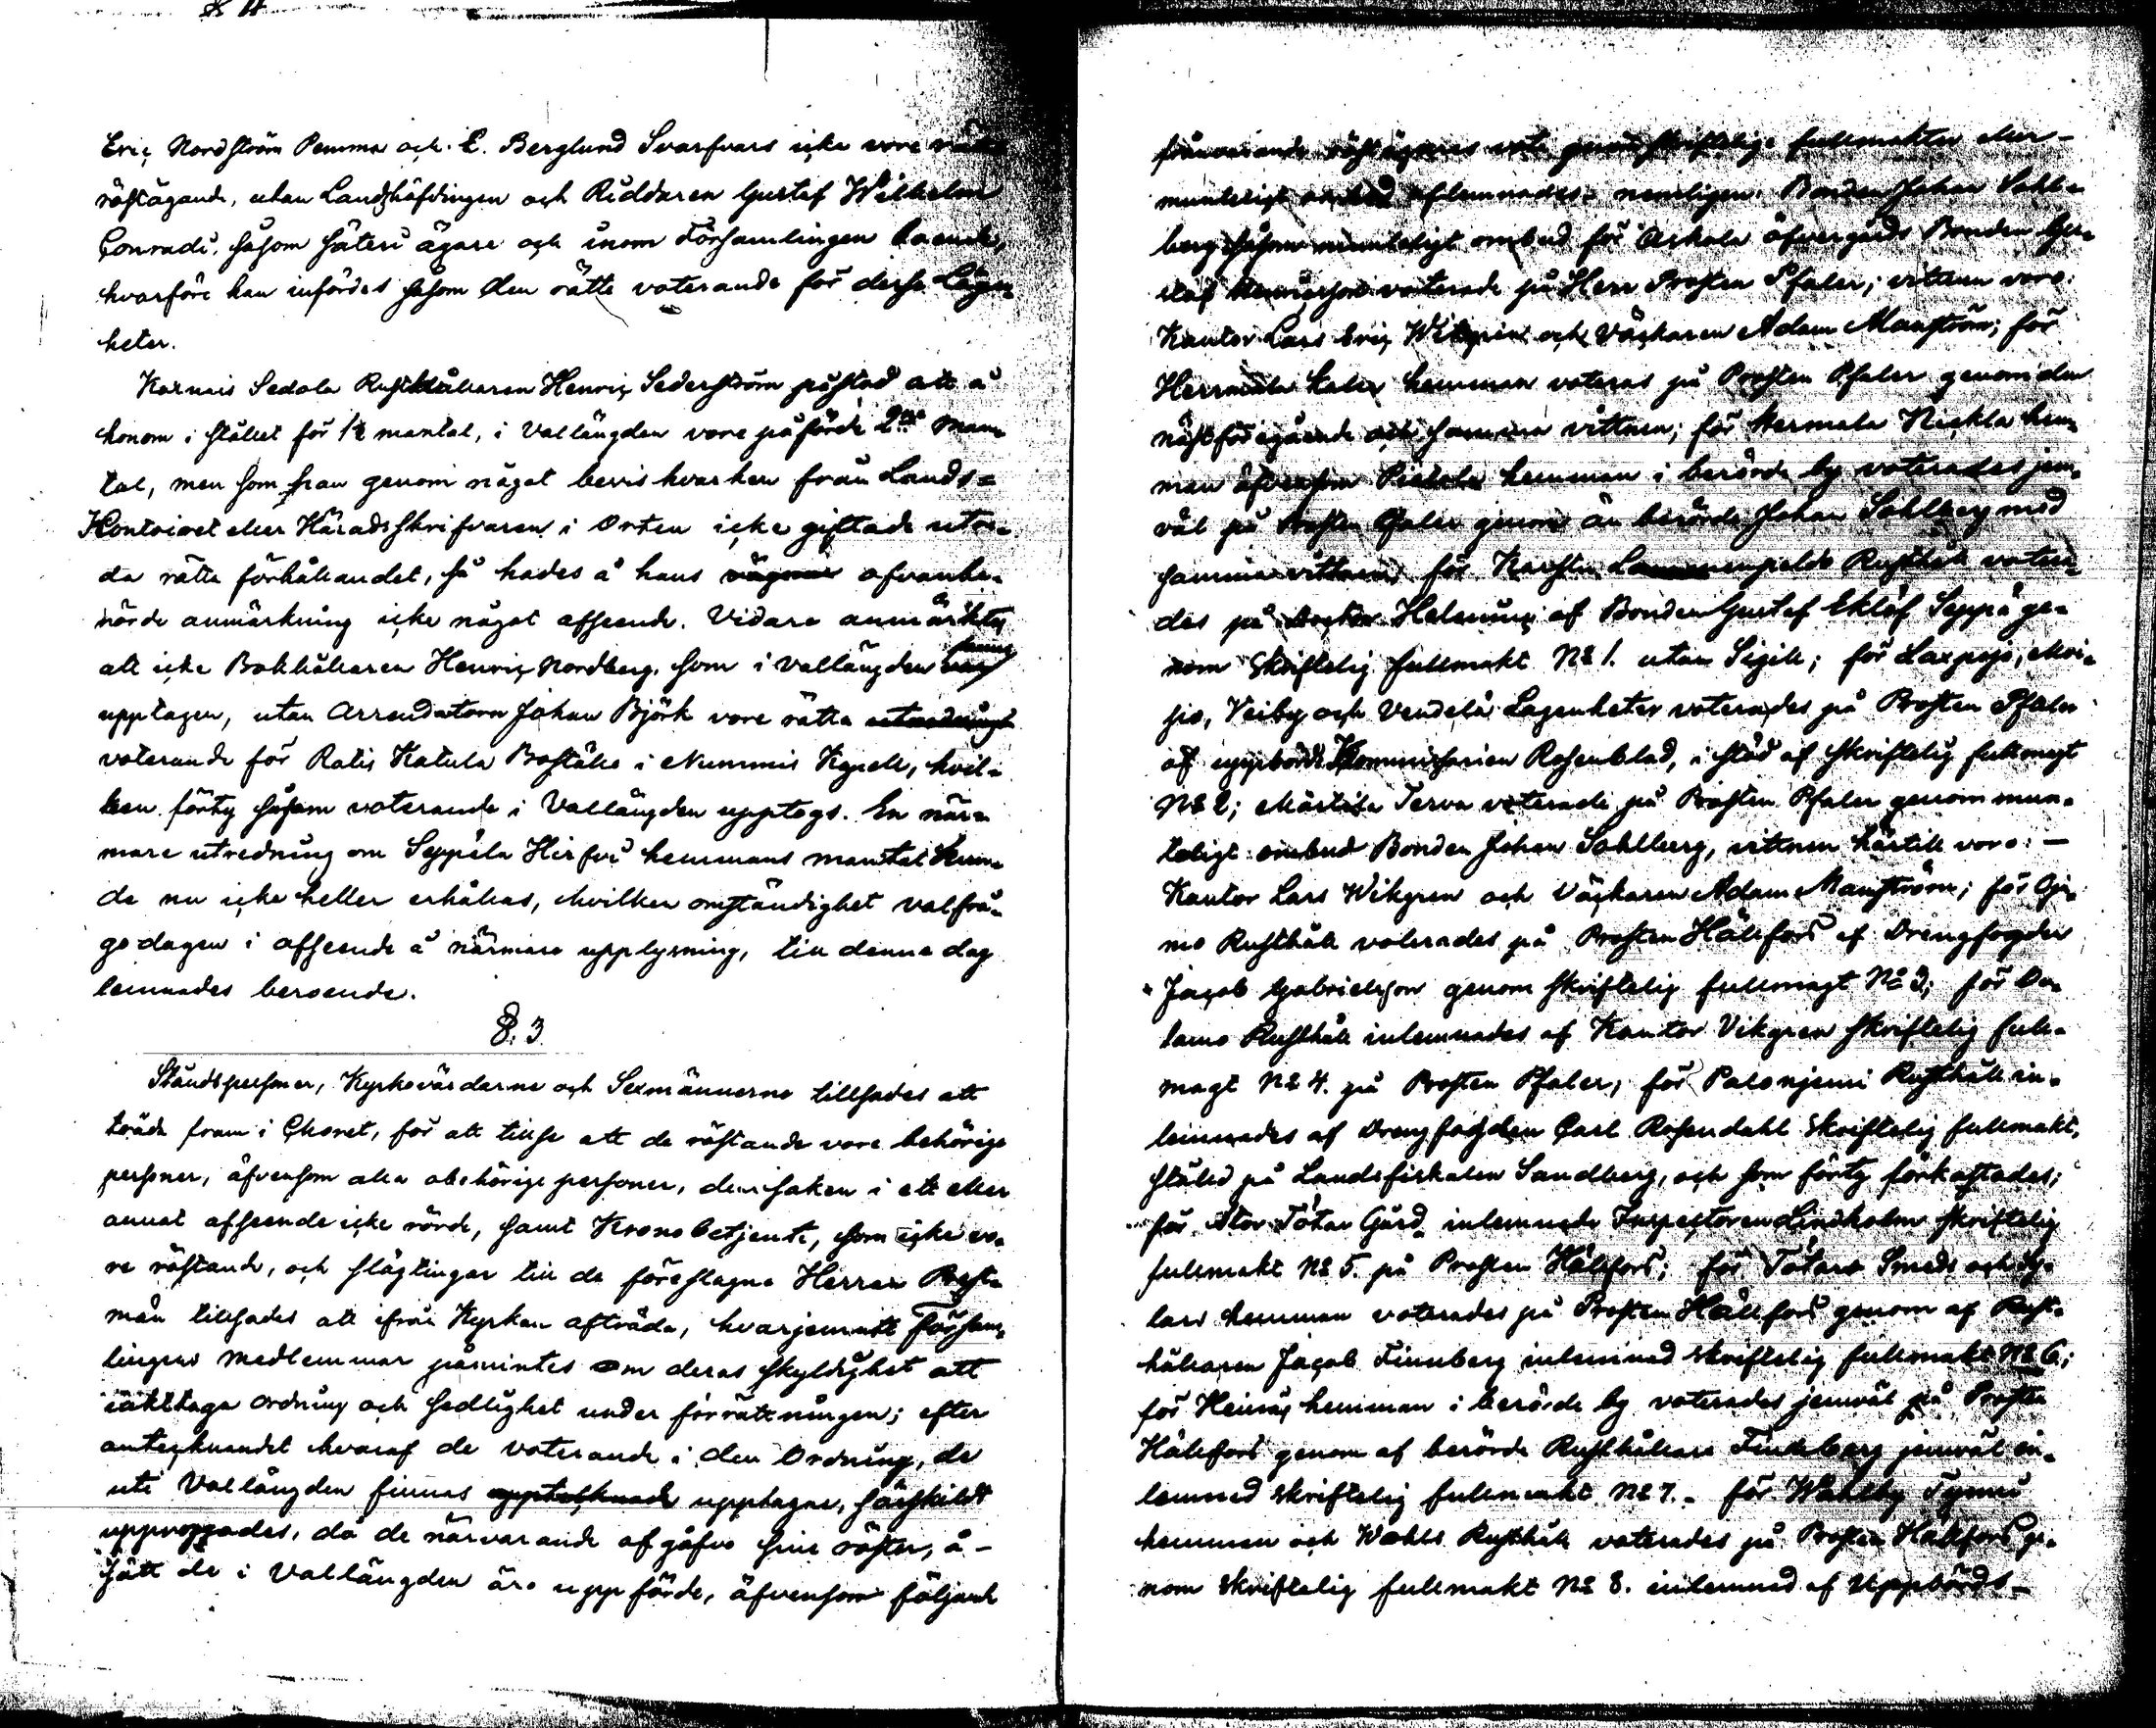 Eric Nordström Pemma och E. Berglund Svarfvars icke vore rätte
röstägande, utan Landshöfdingen och Riddaren Gustaf Wilhelm
Conradi, såsom säteri ägare och inom Församlingen boende,
hvarföre han infördes såsom den rätte voterande för dessa Lägen-
heter.
Karnais Sedola Rusthållaren Henric Sederström påstod att å
honom i stället för 1½ mantal, i Vallängden vore påförde 2ne Man-
tal, men som han genom något bevis hvarken från Lands-
Kontoiret eller Häradsskrifvaren i Orten icke gittade utre-
da rätta förhållandet, så hades å hans vägnar ofvanbe-
rörde anmärkning icke något afseende. Vidare anmärktes
att icke Bokhållaren Henric Nordberg, som i vallängden finns
upptagen, utan Arrendatorn Johan Björk vore rätta
voterande för Ratis Katula Boställe i Nummis Kapell, hvil-
ken förty såsom voterande i Vallängden upptogs. En när-
mare utredning om Seppälä Hirfvi hemmans mantal kun-
de nu icke heller erhållas, hvilken omständighet valfrå-
gedagen i afseende å närmare upplysning, till denna dag
lemnades beroende.
§. 3
Ståndspersoner, Kyrkovärdarne och Sexmännerne tillsades att
träda fram i Choret, för att tillse att de röstande vore behörige
personer, äfvensom alla obehörige personer, dem saken i ett eller
annat afseende icke rörde, samt Kronobetjente, som icke vo-
re röstande, och slägtingar till de föreslagne Herrar Prest-
män tillsades att ifrån Kyrkan afträda, hvarjemte Försam-
lingens medlemmar påmintes om deras skyldighet att
iakttaga ordning och sedlighet under förrättningen; efter
antecknandet hvaraf de voterande i den Ordning, de
uti Vallängden finnas upptagne, särskildt
uppropades, då de närvarande afgåfvo sina röster, å-
sätt de i Vallängden äro uppförde, äfvensom följande
frånvarande röstägares vota genom skriftelige fullmakter eller
munteligt ombud aflemnades, nemligen: Bonden Johan Sahl-
berg såsom munteligt ombud för Askola öfvergårds Bonden Gu-
staf Henricsson voterade på Herr Prosten Pfaler; vittnen voro:
Kantor Lars Eric Wikgren och Väckaren Adam Manström; för
Hermala hemman voteras på Prosten Pfaler genom den
nästföregående och samma vittnen; för Hermala Nickla hem-
man äfvensom hemman i berörde by voterades jem-
väl på Prosten Pfaler genom än berörde Johan Sahlberg med
samma vittnen; för Rusthåll votera-
des på Doctor Helsning af Bonden Gustaf Eklöf Seppä ge-
nom Skriftelig fullmakt No 1. utan Sigill; för Laxpojo, Moi-
sio, Veiby och Vendelä Lägenheter voterades på Prosten Pfaler
af uppbörds Kommissarien Rosenblad, i stöd af skriftelig fullmagt
No 2; Märtila Terva voterade på Prosten Pfaler genom mun-
teligt ombud Bonden Johan Sahlberg, vittnen härtill voro: —
Kantor Lars Wikgren och Väckaren Adam Manström; för Oja-
mo Rusthåll voterades på Prosten Hällfors af Drengfogden
Jacob Gabrielsson genom skriftelig fullmagt No 3; för
Rusthåll inlemnades af Kantor Vikgren skriftelig full-
magt No 4. på Prosten Pfaler; för Palonjemi Rusthåll in-
lemnades af Drengfogden Carl Rosendahl skriftelig fullmakt,
ställd på Landsfiskalen Sandberg, och som förty förkastades;
för Stor Tötar Gård inlemnade Inspectoren Lindholm skriftelig
fullmakt No 5. på Prosten Hällfors; för Tötars Smeds och
lars hemman voterades på Prosten Hällfors genom af Rust-
hållaren Jacob Finnberg inlemnad skriftelig fullmakt No 6;
för hemman i berörde by voterades jemväl på Prosten
Hällfors genom af berörde Rusthållare jemväl in-
lemnad skriftelig fullmakt No 7. - för
hemman och Wohls Rusthåll voterades på Prosten Hällfors ge-
nom skriftelig fullmakt No 8. inlemnad af Uppbörds-